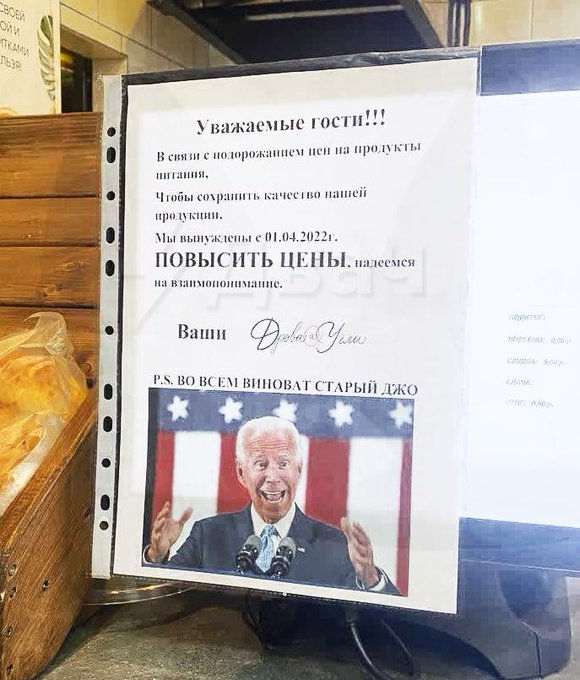 СВОЕЙ
ОЙ И
ИТКАМИ
ЛЬЗЯ!
Уважаемые гости!!!
В связи с подорожанием цен на продукты
питания,
Чтобы сохранить качество нашей
продукции,
Мы вынуждены с 01.04.2022г.
ПОВЫСИТЬ ЦЕНЫ, надеемся
на взаимопонимание.
Ваши Дрова и Угли
P.S. ВО ВСЕМ ВИНОВАТ СТАРЫЙ ДЖО
Двач
ПОДЫТОГ:
ВНЕСЕНО: 0,00 р.
СКИДКА: 0,00 р.
СДАЧА:
ИТОГ: 0,00 р.